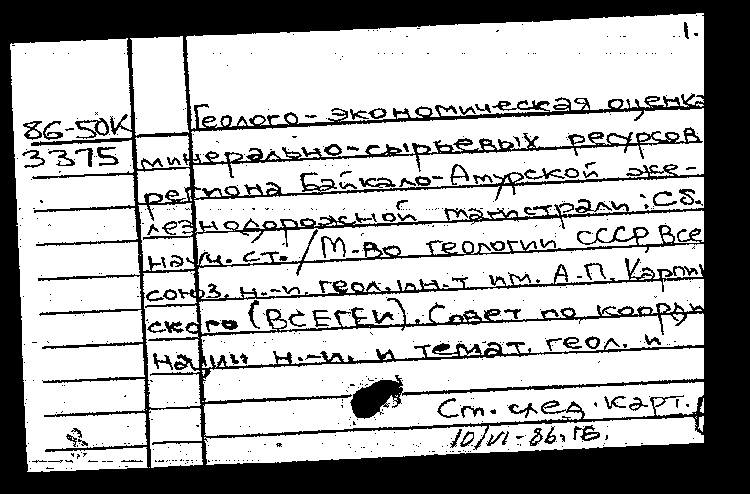 1.
86-50К Геолого-экономическая оценка
3375 минерально-сырьевых ресурсов
региона Байкало-Амурской же-
лезнодорожной магистрали : Сб.
науч. ст. / М-во геологии СССР, Все
союз. н.-и. геол. ин-т им. А.П. Карпин
ского (ВСЕГЕИ). Совет по коорди
нации н.-и. и темат. геол. и
См. след. карт.
10/VI-86. ГБ.